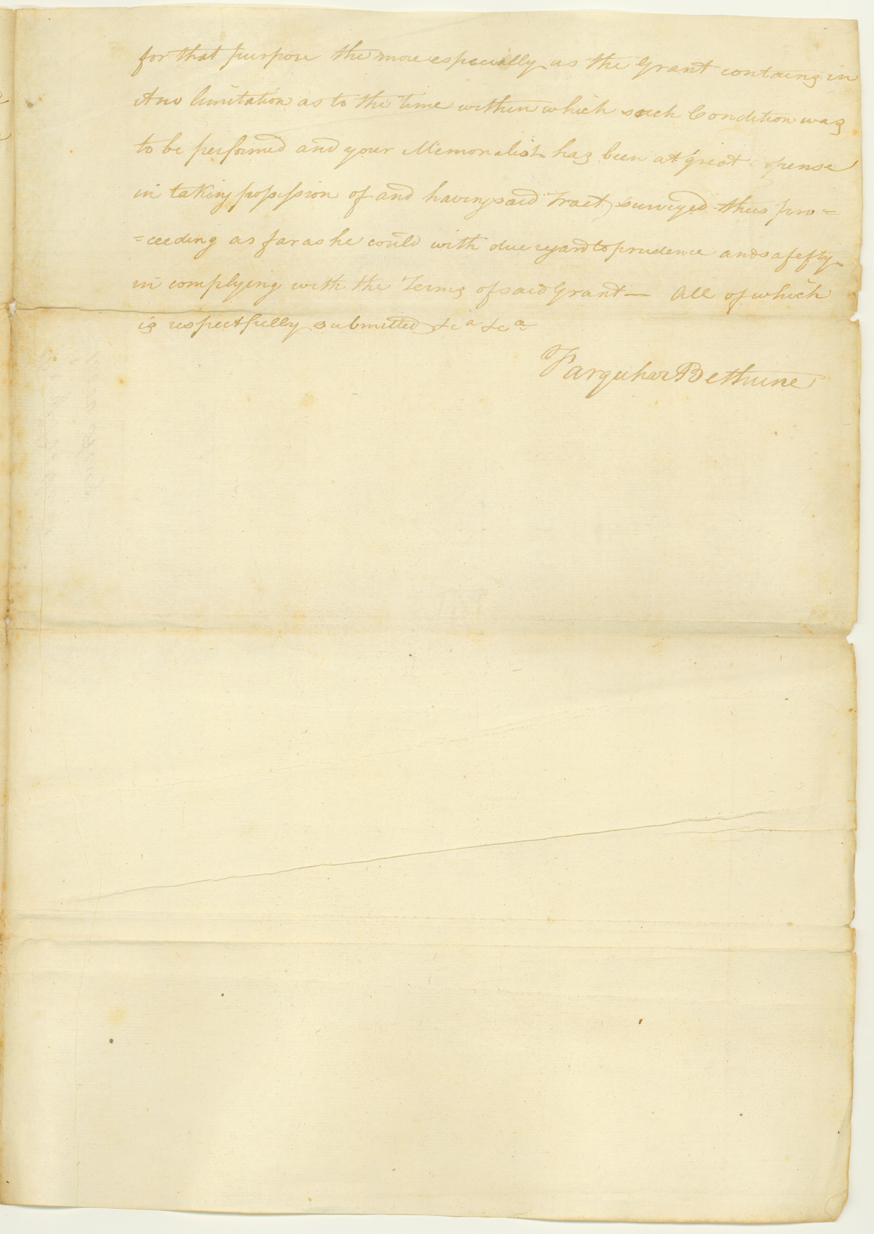 for that purpose the more especially as the Grant containg in
it no limitation as to the time within which such Condition was
to be performed and your Memorialist has been at great expense
in taking possession of and having said Tract surveyed thus pro=
=ceeding as far as he could with due regard to prudence and safefty
in complying with the Terms of said Grant— All of which
is respectfully submitted &c a &c a
Farquhar Bethune